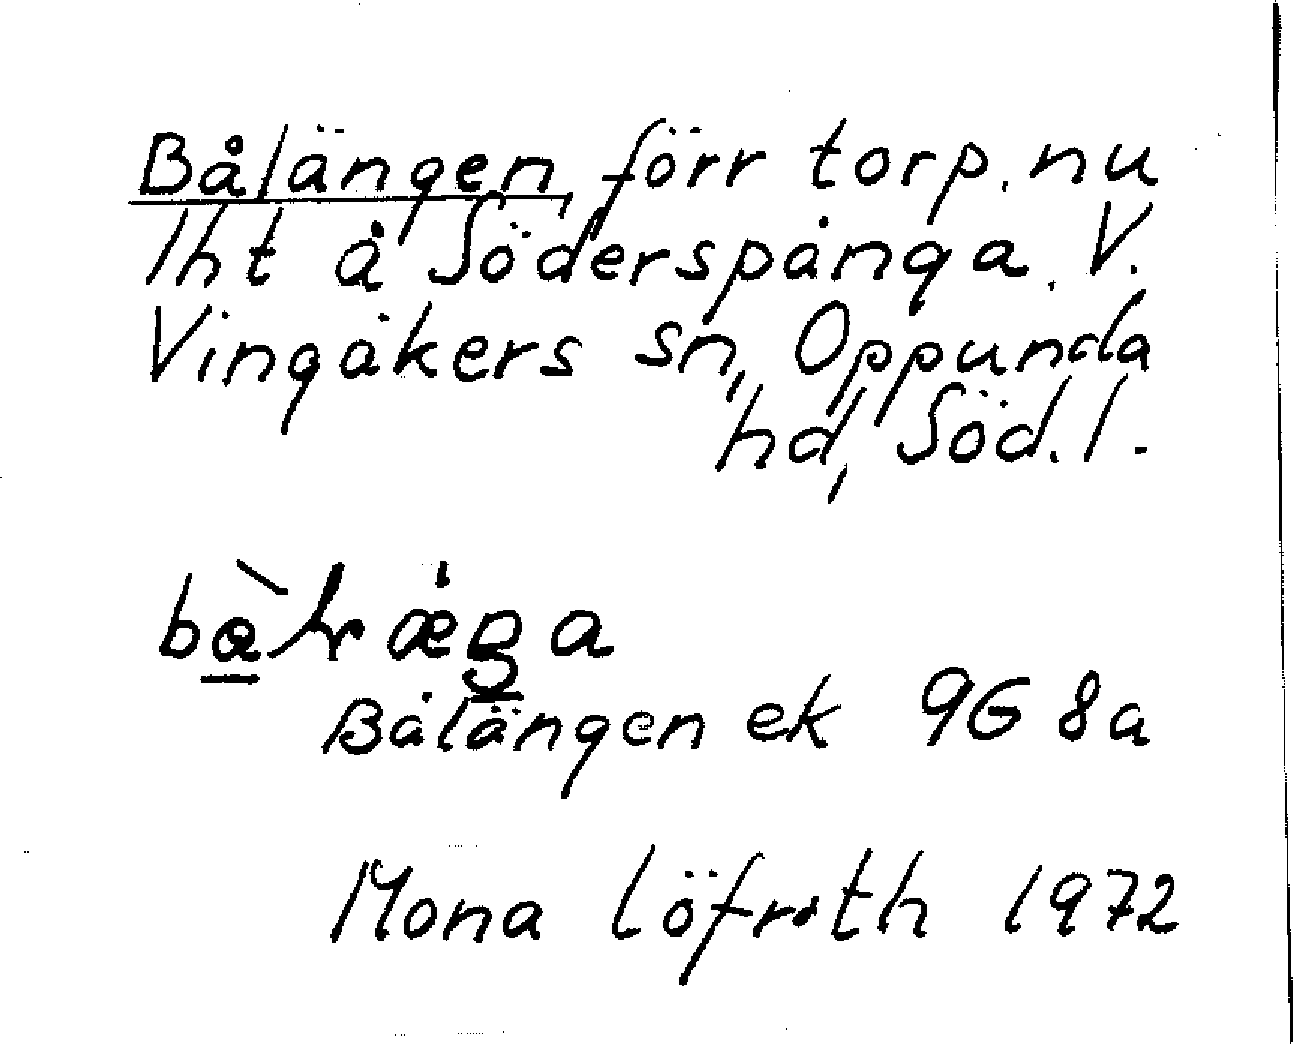 Bålängen, förr torp, nu
lht å Söderspånga, V.
Vingåkers sn, Oppunda
hd, Söd. l.
Bålängen ek 9G 8a
Mona Löfroth 1972